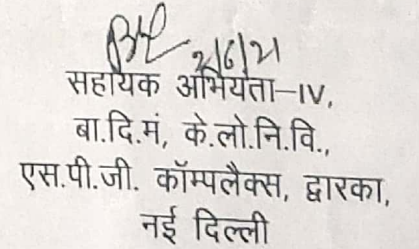 2/6/21
सहायक अभियंता-IV,
बा.दि.मं, के.लो.नि.वि.,
एस.पी.जी. कॉम्पलैक्स, द्वारका,
नई दिल्ली